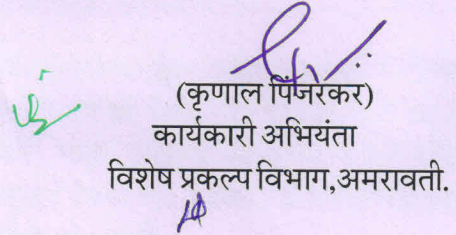 (कृणाल पिंजरकर)
कार्यकारी अभियंता
विशेष प्रकल्प विभाग,अमरावती.